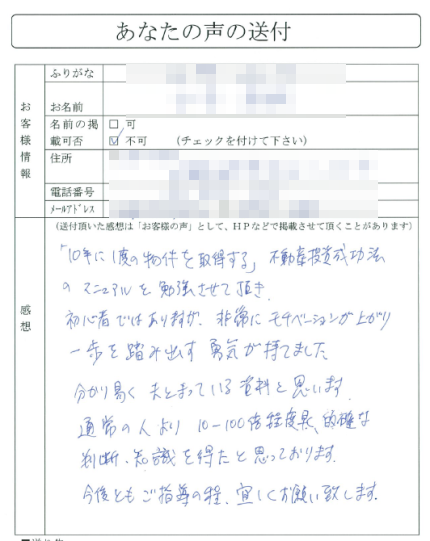 あなたの声の送付
お客様情報
ふりがな
お名前
名前の掲載可否
□ 可
☑ 不可 (チェックを付けて下さい)
住所
電話番号
メールアドレス
(送付頂いた感想は「お客様の声」として、HPなどで掲載させて頂くことがあります)
感想
「10年に1度の物件を取得する」不動産投資成功法
のマニュアルを勉強させて頂き
初心者ではありますが、非常にモチベーションが上がり
一歩を踏み出す勇気が持てました
分かり易くまとまっている資料と思います.
通常の人より10-100倍程度、的確な
判断、知識を得たと思っております.
今後ともご指導の程、宜しくお願い致します.